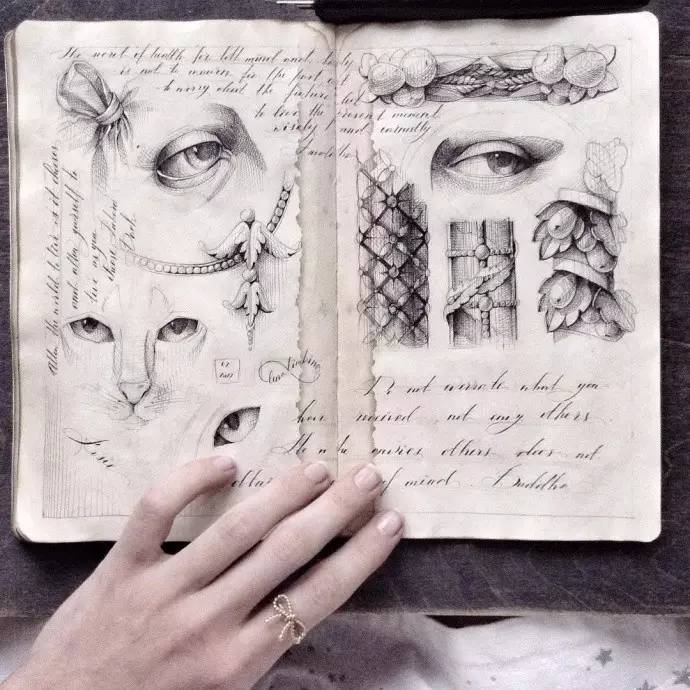 The secret of health for both mind and body
is not to mourn for the past, not
to worry about the future, but
to live the present moment
wisely and earnestly
Allow the world to live as it chooses,
and allow yourself to
live as you
choose
Bach.
Do not overrate what you
have received, nor envy others.
He who envies others does not
obtain of mind. Buddha